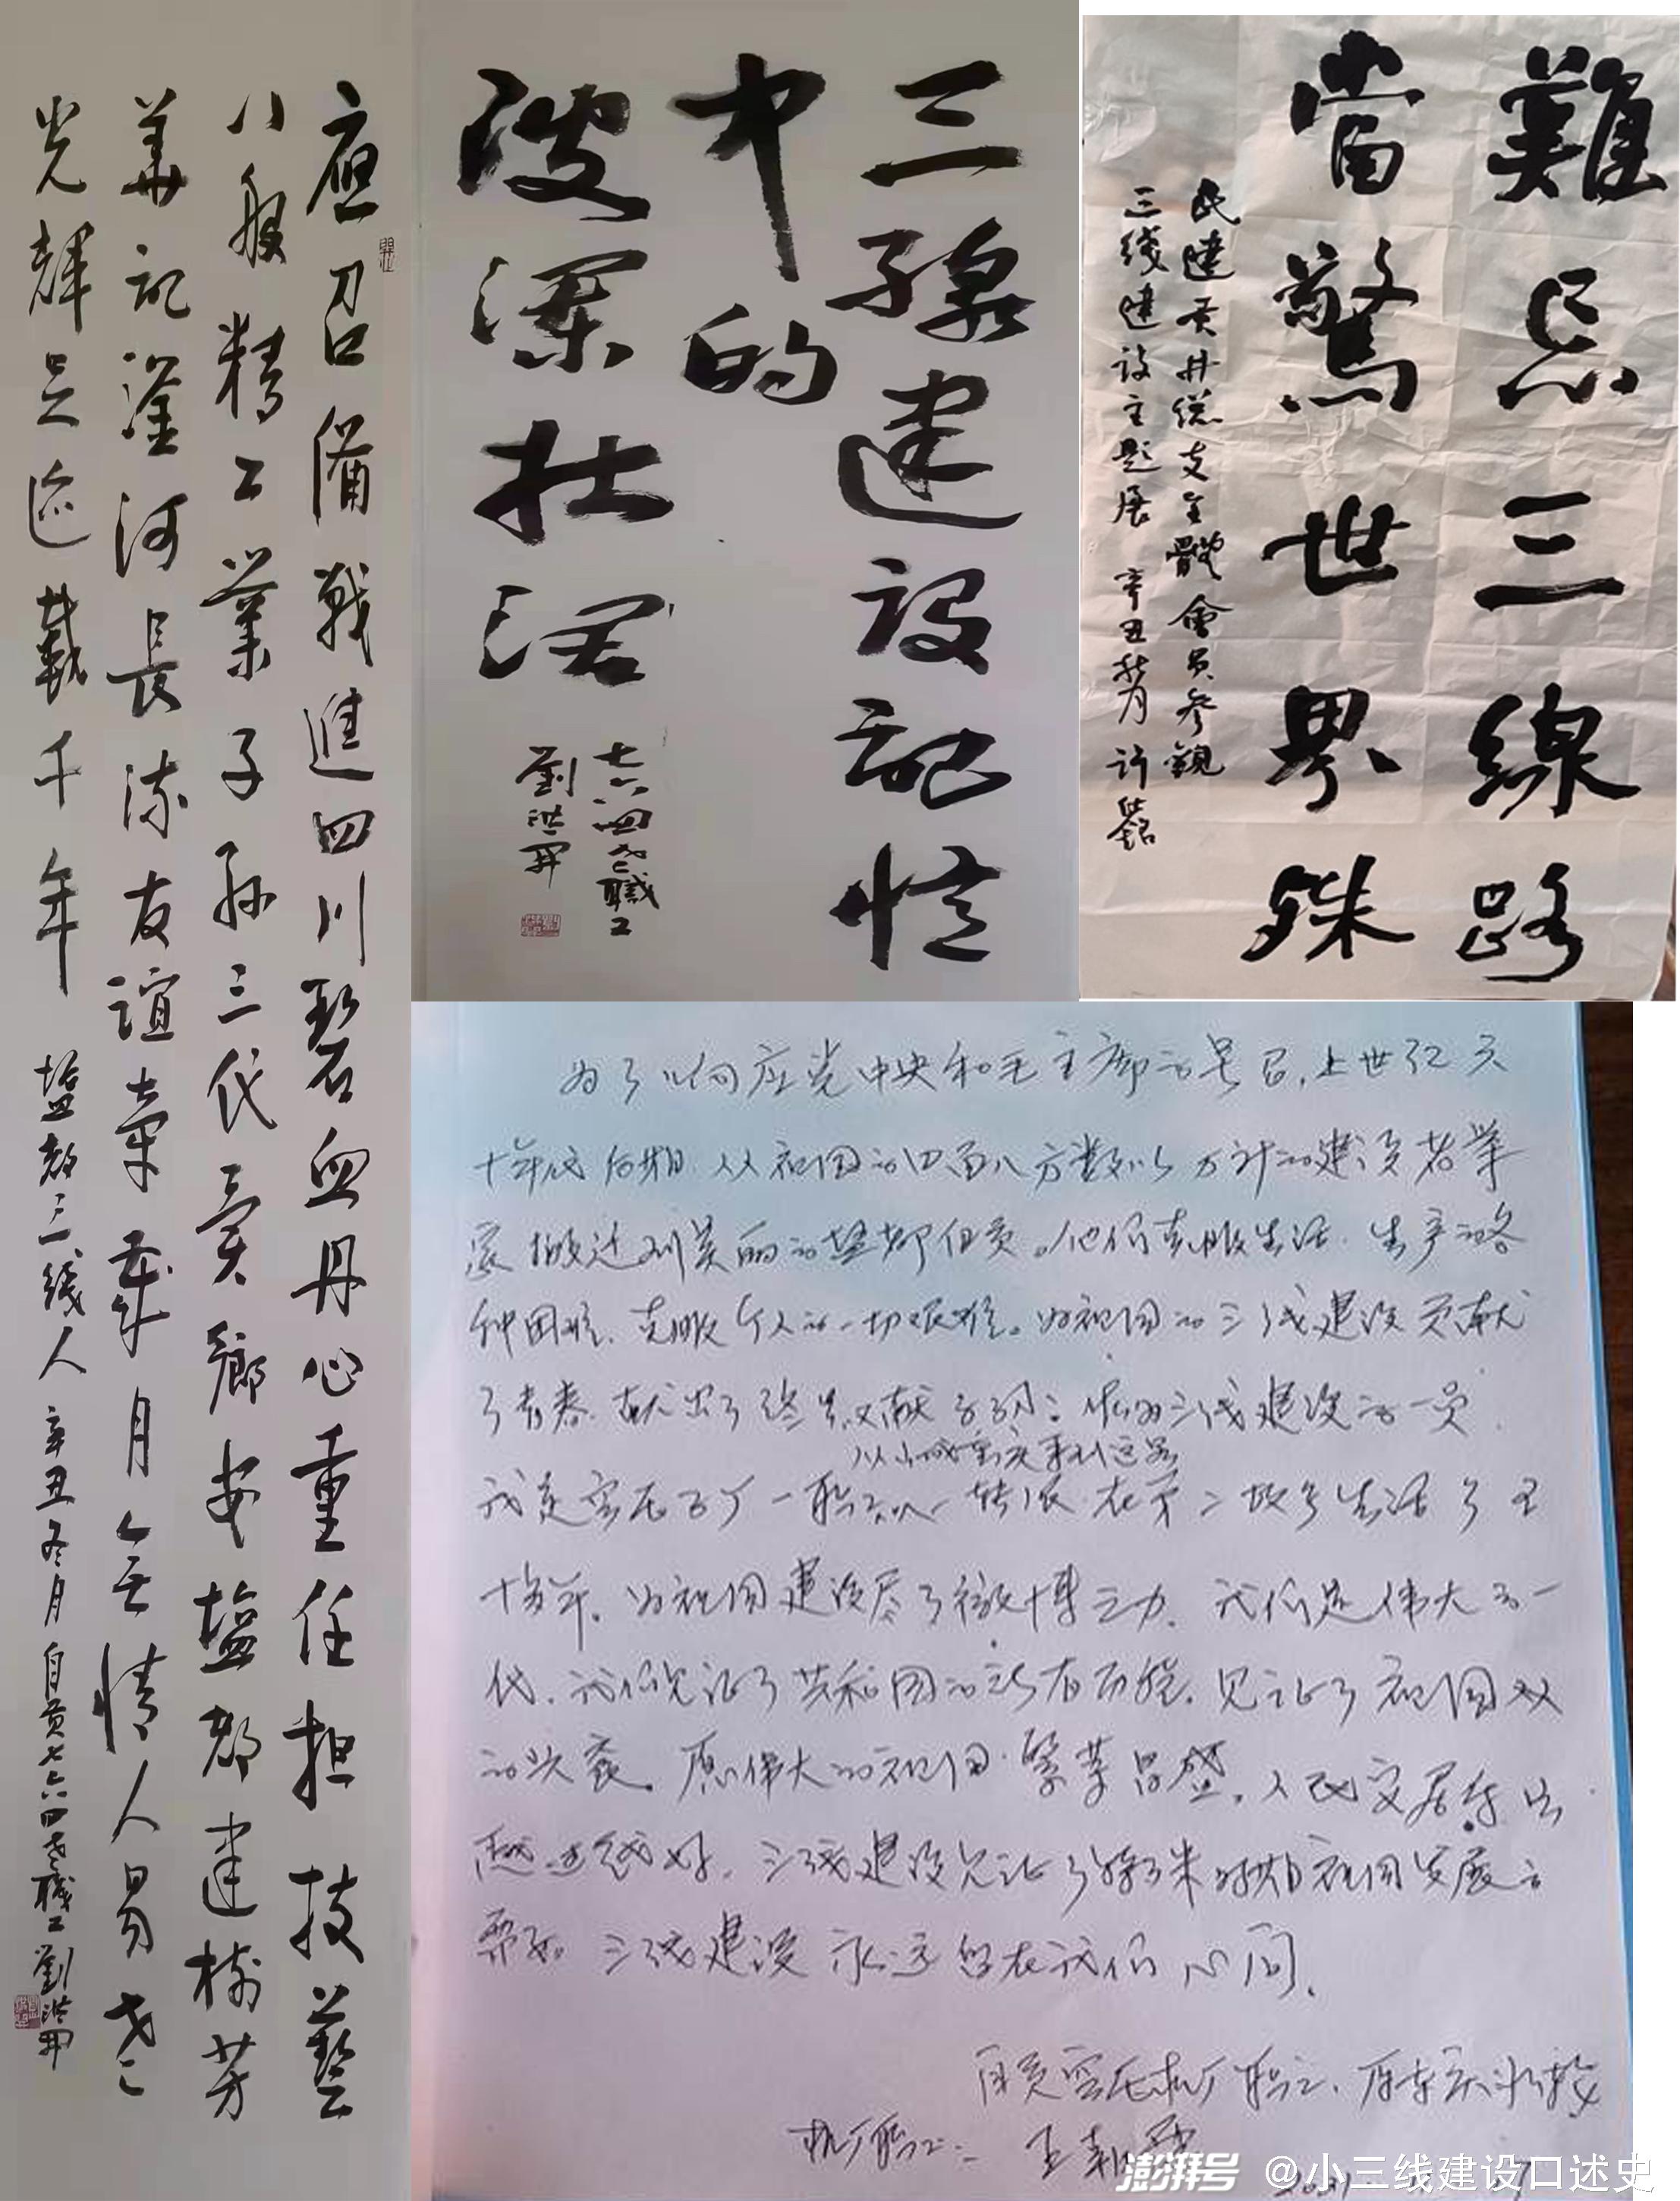 應召備戰進四川碧血丹心重任担技藝
八般精工業子孫三代賣鄉安塩都建树芳
華記滏河長流友谊牽歲月無情人易老
光輝足迹載千年
塩都三線人 辛丑冬月自貢七六四老職工劉洪開
三線建設記忆
中的
波澜壮活
七六四老職工
劉洪開
難忘三線路
當驚世界殊
民建贡井总支全體會員参觀
三线建设主题展 辛丑秋月
为了响应党中央和毛主席的号召,上世纪六
十年代后期.从祖国的四面八方数以万计的建设者举
家搬迁到美丽的盐都自贡。他们克服生活.生产的各
种困难.克服个人的一切艰难。为祖国的三线建设贡献
了青春.献出了终生又献子孙;作为三线建设的一员.
从山城重庆来到这里
我是空压厂一职工 在第二故乡生活了五
十多年。为祖国建设尽了微博之力.我们是伟大的一
代.我们见证了共和国的所有历程.见证了祖国
的兴衰。愿伟大的祖国繁荣昌盛.人民安居
越过越好.三线建设见证了特殊时期祖国发展的
三线建设永远留在我们心间.
自贡空压机厂职工、原重庆水轮
机厂职工:
澎湃号 @小三线建设口述史